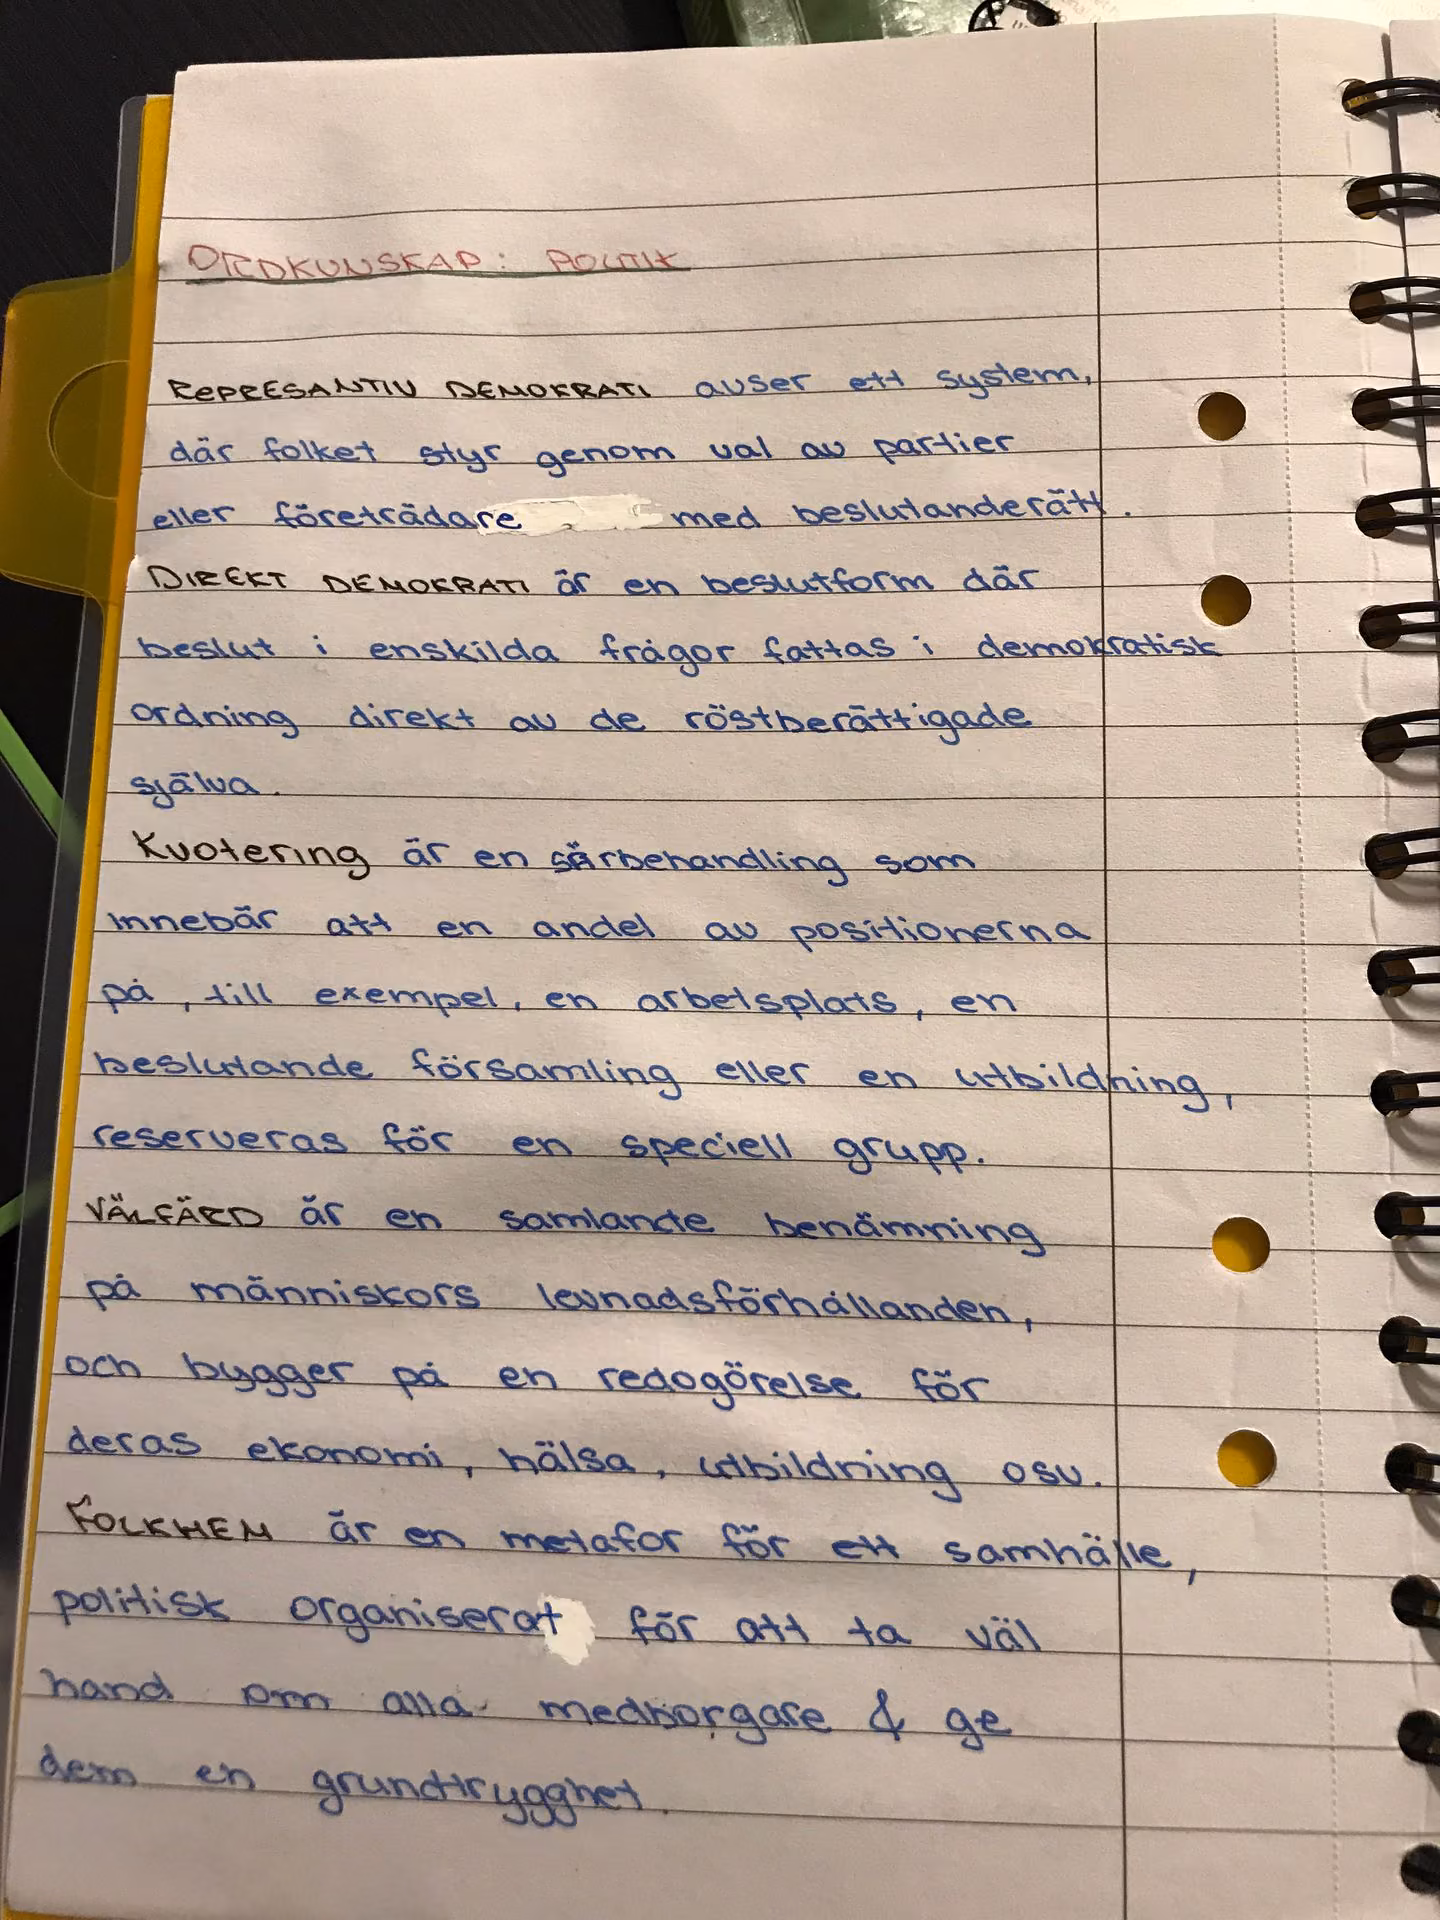 ORDKUNSKAP: POLITIK
REPRESANTIV DEMOKRATI avser ett system,
där folket styr genom val av partier
eller företrädare med beslutanderätt.
DIREKT DEMOKRATI är en beslutform där
beslut i enskilda frågor fattas i demokratisk
ordning direkt av de röstberättigade
själva.
Kvotering är en särbehandling som
innebär att en andel av positionerna
på, till exempel, en arbetsplats, en
beslutande församling eller en utbildning,
reserveras för en speciell grupp.
VÄLFÄRD är en samlande benämning
på människors levnadsförhållanden,
och bygger på en redogörelse för
deras ekonomi, hälsa, utbildning osv.
FOLKHEM är en metafor för ett samhälle,
politisk organiserat för att ta väl
hand om alla medborgare & ge
dem en grundtrygghet.